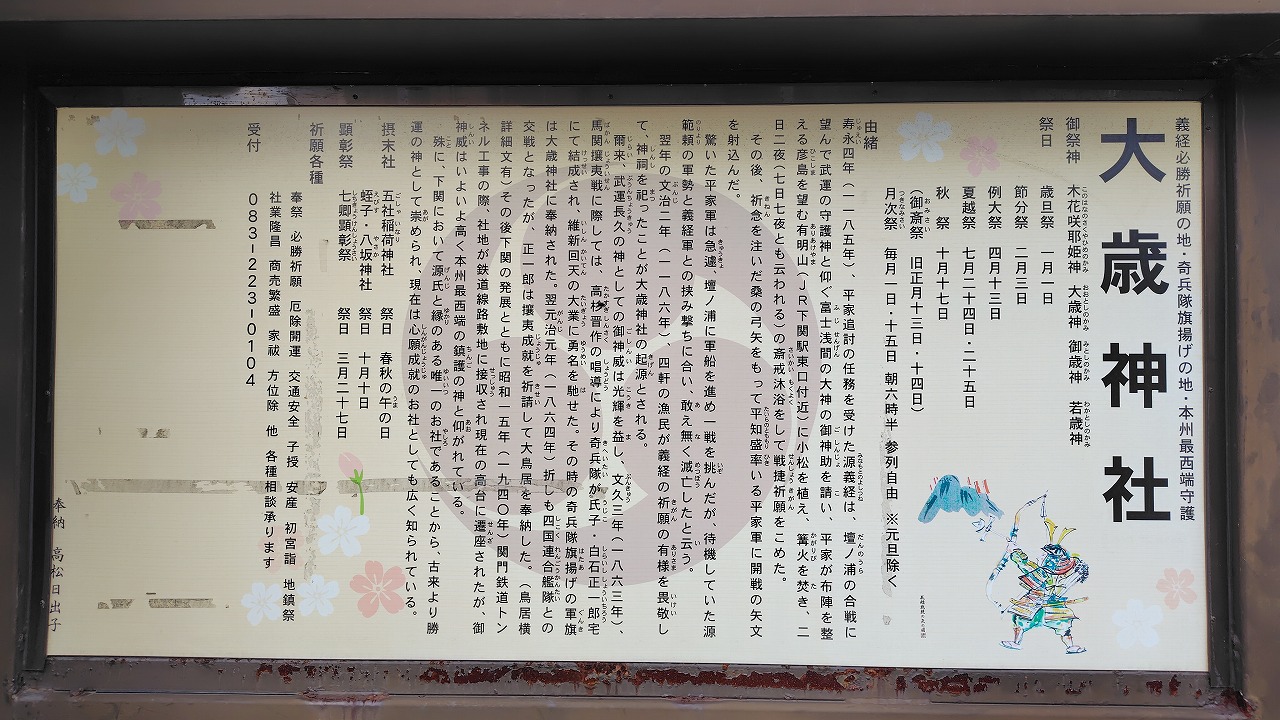 義経必勝祈願の地・奇兵隊旗揚げの地・本州最西端守護
大歳神社
御祭神 木花咲耶姫神 大歳神 御歳神 若歳神
祭日
歳旦祭 一月一日
節分祭 二月三日
例大祭 四月十三日
夏越祭 七月二十四日・二十五日
秋祭 十月十七日
(御斎祭 旧正月十三日・十四日)
月次祭 毎月一日・十五日 朝六時半 参列自由 ※元旦除く
由緒
寿永四年(一一八五年)、平家追討の任務を受けた源義経は、壇ノ浦の合戦に
望んで武運の守護神と仰ぐ富士浅間の大神の御神助を請い、平家が布陣を整
える彦島を望む有明山(JR下関駅東口付近)に小松を植え、篝火を焚き、二
日二夜(七日七夜とも云われる)の斎戒沐浴をして戦捷祈願をこめた。
その後、祈念を注いだ桑の弓矢をもって平知盛率いる平家軍に開戦の矢文
を射込んだ。
驚いた平家軍は急遽、壇ノ浦に軍船を進め一戦を挑んだが、待機していた源
範頼の軍勢と義経軍との挟み撃ちに合い、敢え無く滅亡したと云う。
翌年の文治二年(一一八六年)、四軒の漁民が義経の祈願の有様を畏敬し
て、神祠を祀ったことが大歳神社の起源とされる。
爾来、武運長久の神としての御神威は光輝を益し、文久三年(一八六三年)、
馬関攘夷戦に際しては、高杉晋作の唱導により奇兵隊が氏子・白石正一郎宅
にて結成され、維新回天の大業に勇名を馳せた。その時の奇兵隊旗揚げの軍旗
は大歳神社に奉納された。翌元治元年(一八六四年)折しも四国連合艦隊との
交戦となったが、正一郎は攘夷成就を祈請して大鳥居を奉納した。(鳥居横
詳細文有)その後下関の発展とともに昭和一五年(一九四〇年)関門鉄道トン
ネル工事の際、社地が鉄道線路敷地に接収され現在の高台に遷座されたが、御
神威はいよいよ高く本州最西端の鎮護の神と仰がれている。
殊に、下関において、源氏と縁のある唯一のお社であることから、古来より勝
運の神として崇められ、現在は心願成就のお社としても広く知られている。
摂末社 五社稲荷神社 祭日 春秋の午の日
蛭子・八坂神社 祭日 十月十日
顕彰祭 七卿顕彰祭 祭日 三月二十七日
祈願各種
奉祭 必勝祈願 厄除開運 交通安全 子授 安産 初宮詣 地鎮祭
社業隆昌 商売繁盛 家祓 方位除 他 各種相談承ります
受付 083-223-0104
奉納 高松日出子